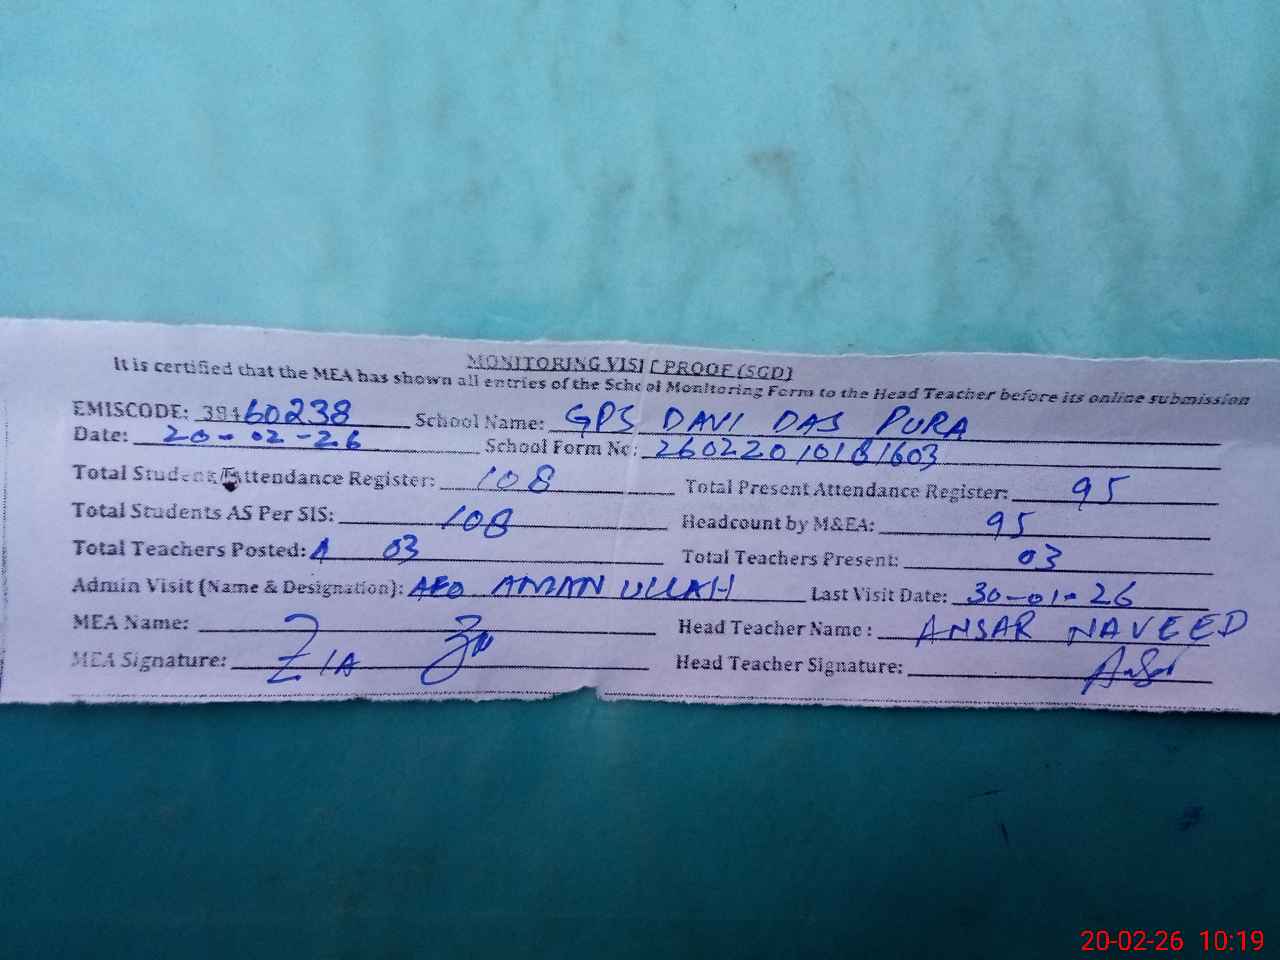 MONITORING VISIT PROOF (SGD)
It is certified that the MEA has shown all entries of the School Monitoring Form to the Head Teacher before its online submission
EMISCODE: 38460238 School Name: GPS DAVI DAS PURA
Date: 20-02-26 School Form No: 26022010181603
Total Student Attendance Register: 108 Total Present Attendance Register: 95
Total Students AS Per SIS: 108 Headcount by M&EA: 95
Total Teachers Posted: 03 Total Teachers Present: 03
Admin Visit (Name & Designation): AEO AMAN ULLAH Last Visit Date: 30-01-26
MEA Name: ZIA Head Teacher Name : ANSAR NAVEED
MEA Signature: Head Teacher Signature: Ansar
20-02-26 10:19